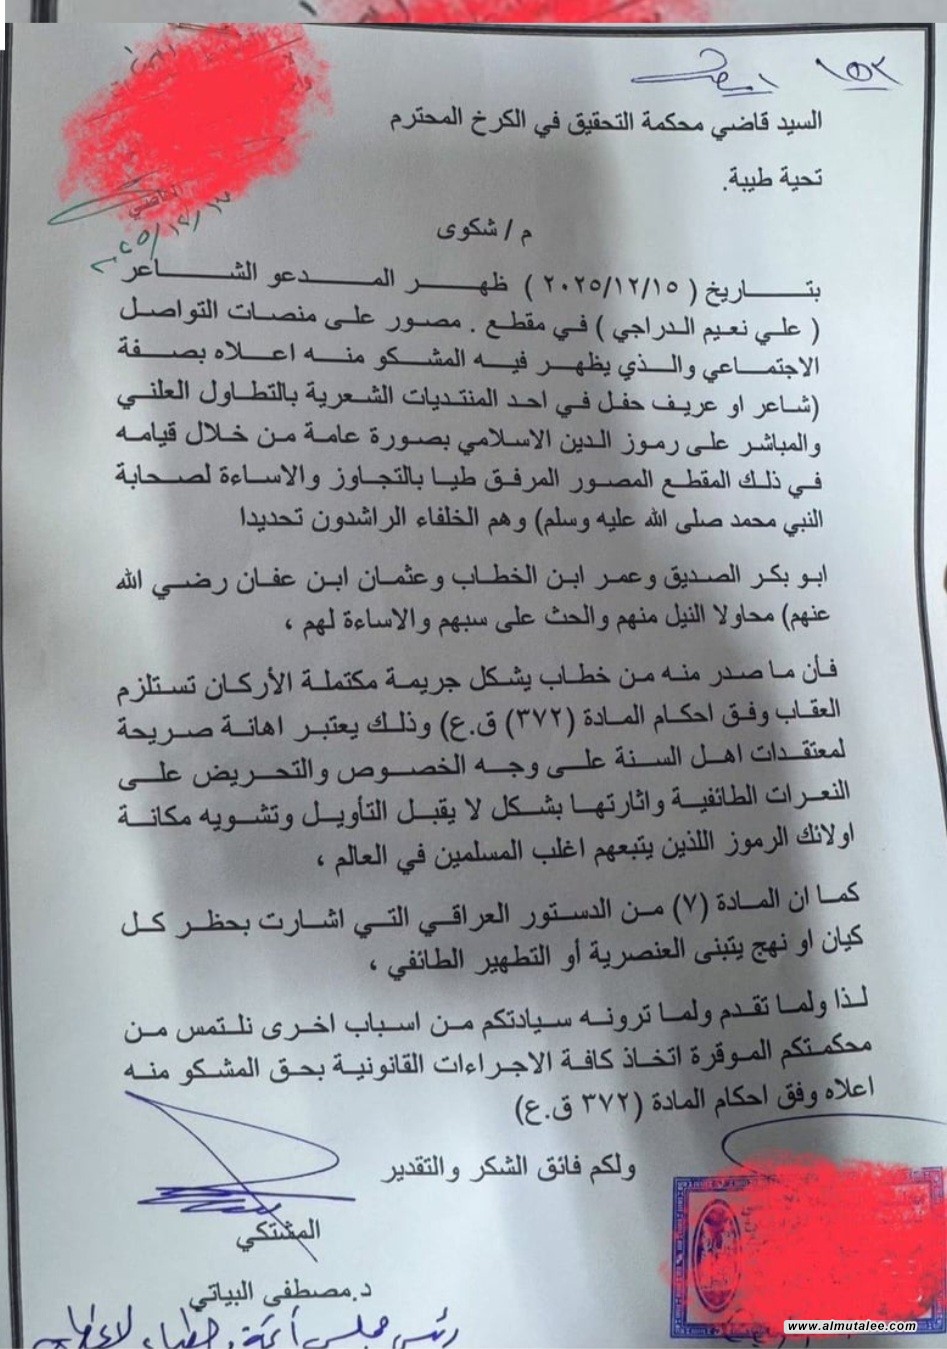 السيد قاضي محكمة التحقيق في الكرخ المحترم
تحية طيبة.
٢٠٢٥/١٢/
م / شكوى
بتـــاريخ ( ٢٠٢٥/١٢/١٥ ) ظهـر المـدعو الشـاعر
( علي نعيم الدراجي ) في مقطع . مصور على منصات التواصل
الاجتماعي والذي يظهر فيه المشكو منه اعلاه بصفة
(شاعر او عريف حفل في احد المنتديات الشعرية بالتطاول العلني
والمباشر على رموز الدين الاسلامي بصورة عامة من خلال قيامه
في ذلك المقطع المصور المرفق طيا بالتجاوز والاساءة لصحابة
النبي محمد صلى الله عليه وسلم) وهم الخلفاء الراشدون تحديدا
ابو بكر الصديق وعمر ابن الخطاب وعثمان ابن عفان رضي الله
عنهم) محاولا النيل منهم والحث على سبهم والاساءة لهم ،
فأن ما صدر منه من خطاب يشكل جريمة مكتملة الأركان تستلزم
العقاب وفق احكام المادة (٣٧٢) ق.ع) وذلك يعتبر اهانة صريحة
لمعتقدات اهل السنة على وجه الخصوص والتحريض على
النعرات الطائفية واثارتها بشكل لا يقبل التأويل وتشويه مكانة
اولائك الرموز اللذين يتبعهم اغلب المسلمين في العالم ،
كما ان المادة (٧) من الدستور العراقي التي اشارت بحظر كل
كيان او نهج يتبنى العنصرية أو التطهير الطائفي ،
لذا ولما تقدم ولما ترونه سيادتكم من اسباب اخرى نلتمس من
محكمتكم الموقرة اتخاذ كافة الاجراءات القانونية بحق المشكو منه
اعلاه وفق احكام المادة (٣٧٢ ق.ع)
ولكم فائق الشكر والتقدير
المشتكي
د.مصطفى البياتي
رئيس مجلس أئمة وخطباء
www.almutalee.com